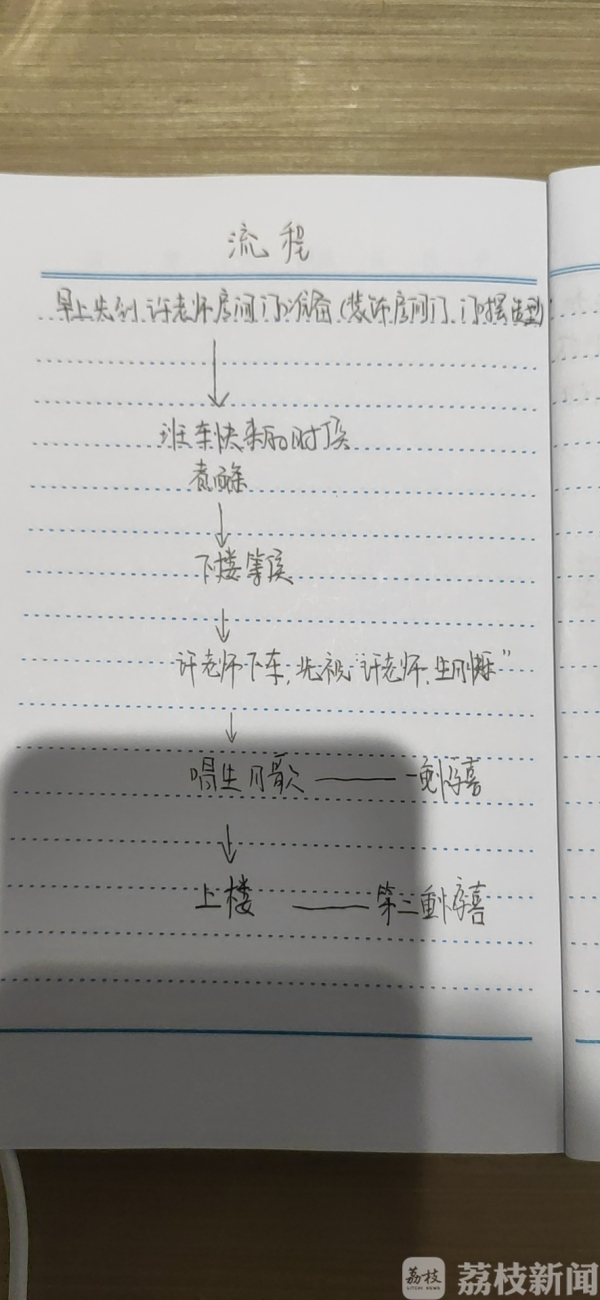 流程
早上先到许老师房间门准备(装饰房间门、门摆造型)
↓
班车快来的时候
煮面条
↓
下楼等候
↓
许老师下车,先祝“许老师,生日快乐”
↓
唱生日歌 —— 一重惊喜
↓
上楼 —— 第二重惊喜
荔枝 荔枝新闻
LITCHI NEWS